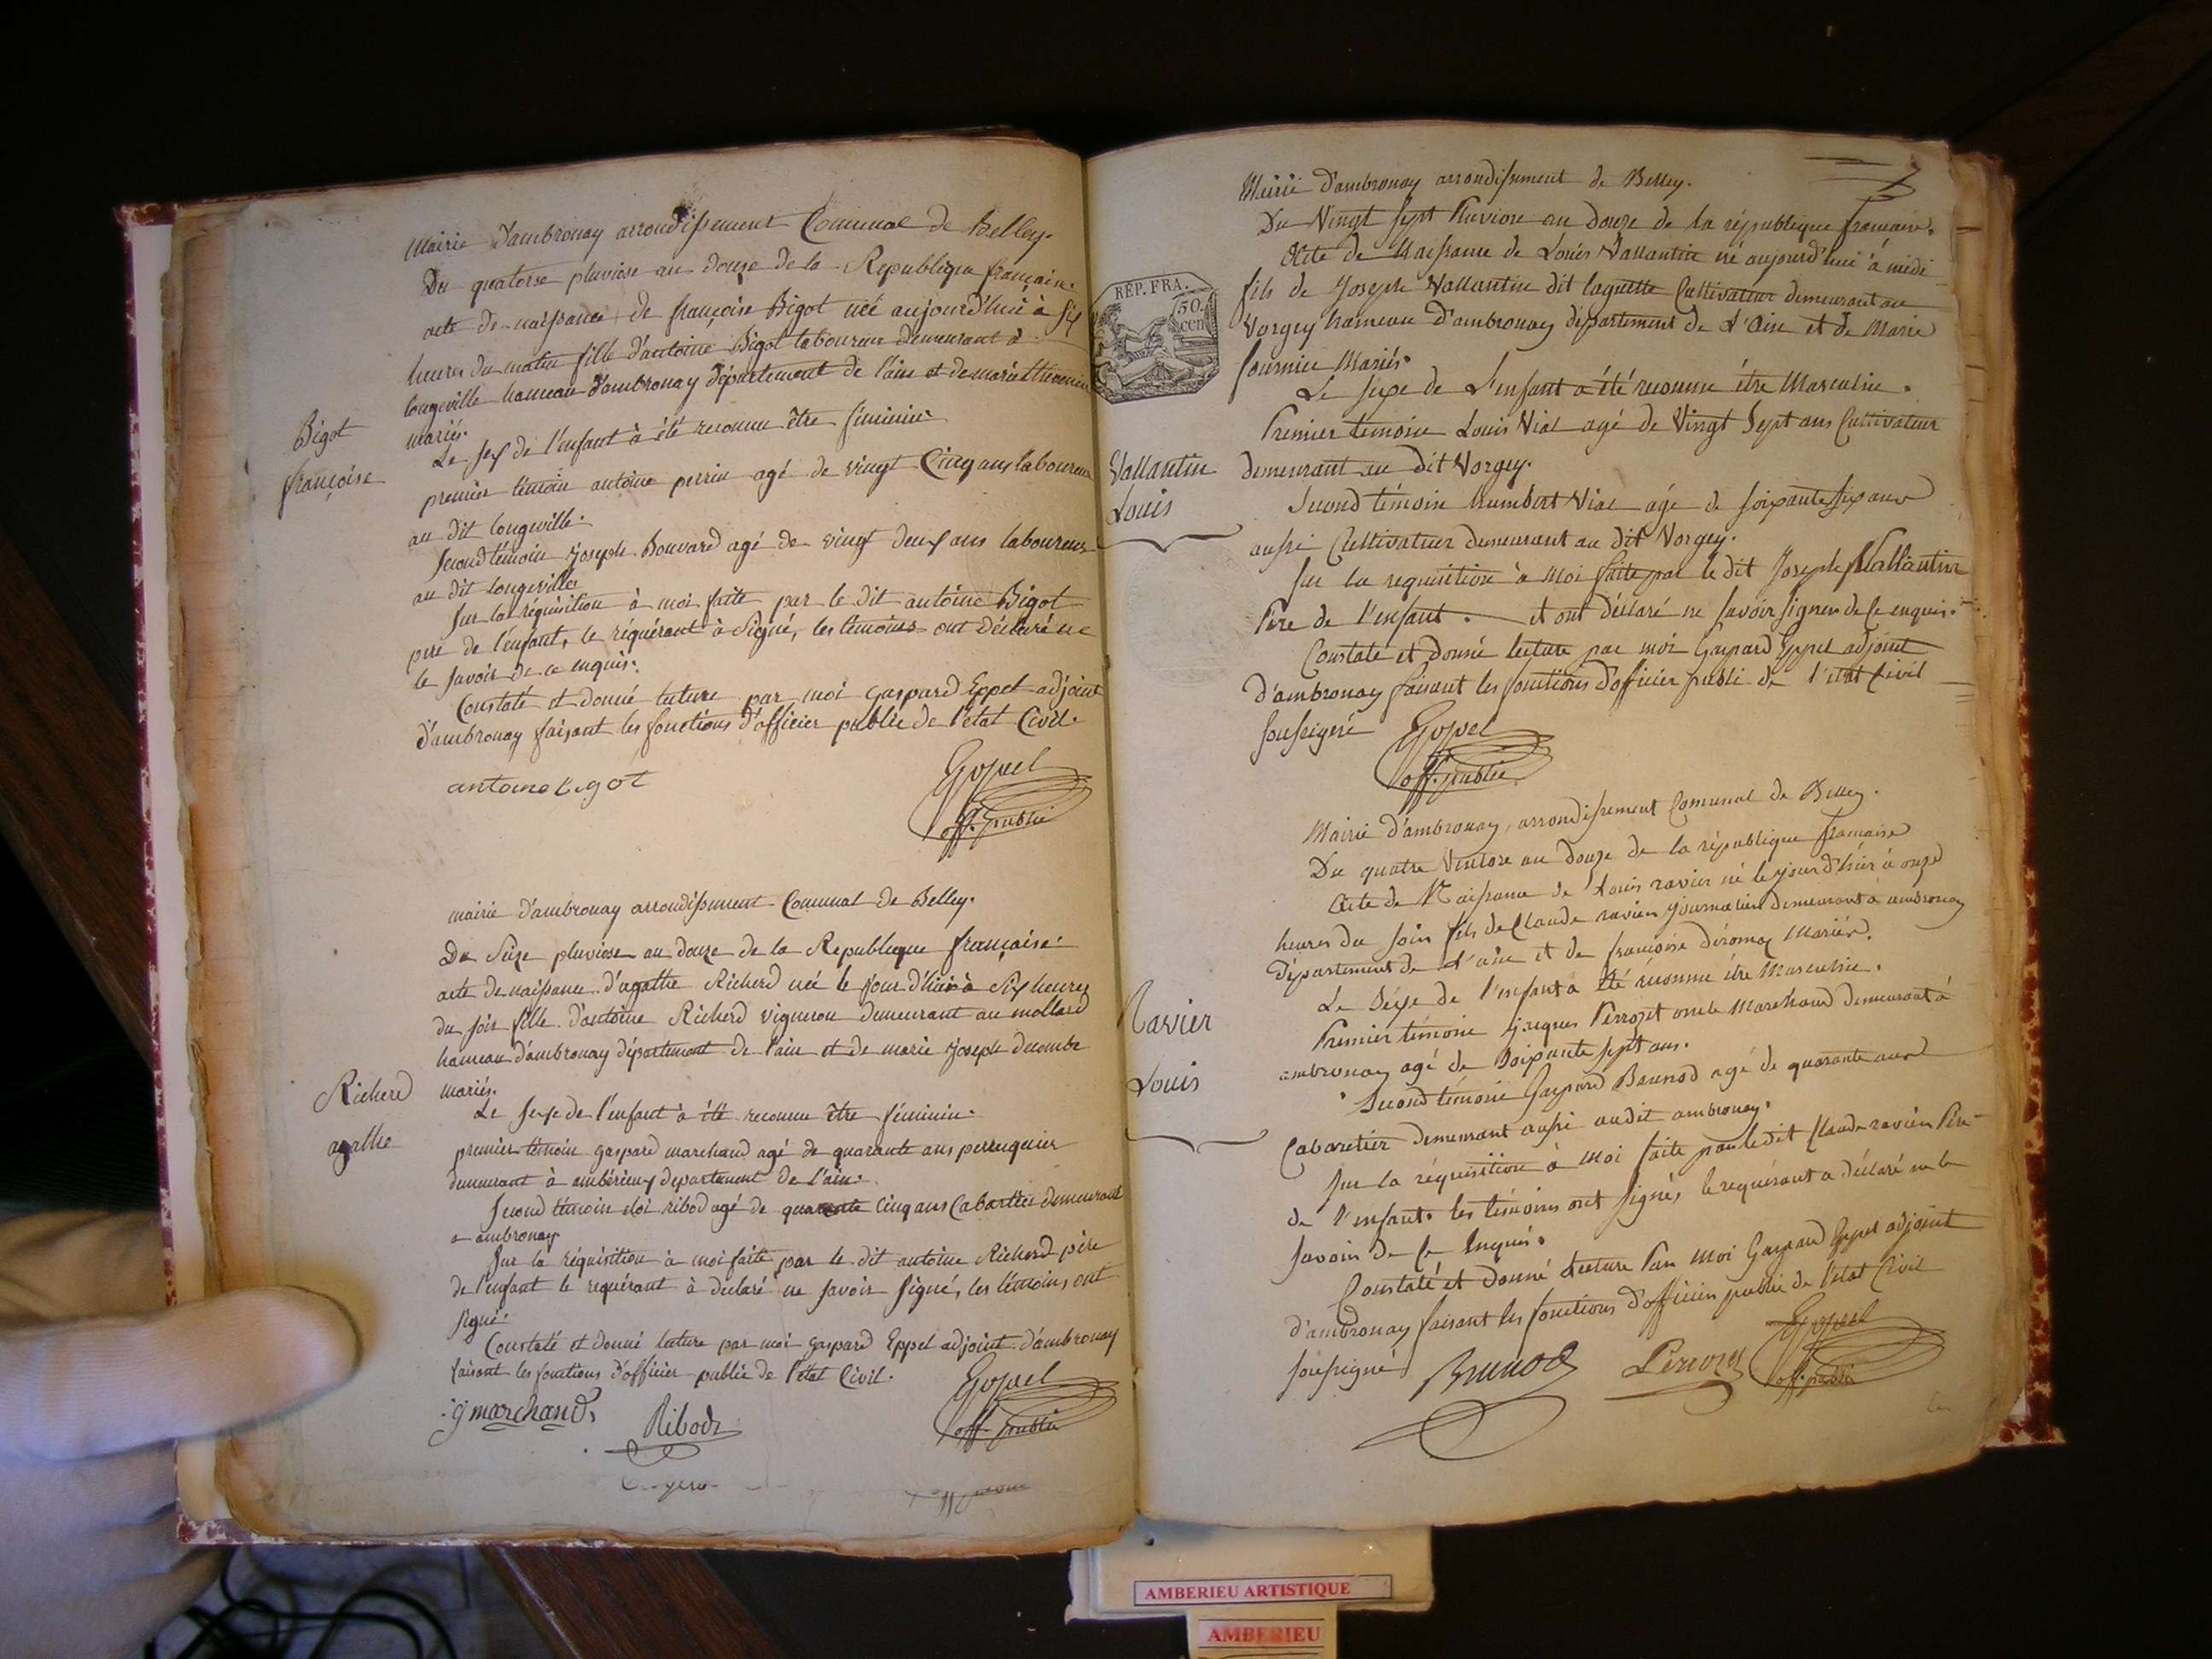 Mairie d'ambronay arrondissement Communal de Belley.
Du quatorse pluviose an douze de la Republique française.
acte de naissance de françoise Bigot née aujourd'hui à six
heures du matin fille d'antoine Bigot laboureur demeurant à
longeville hameau d'ambronay département de l'ain et de marie thevenin
mariés.
Le sex de l'enfant à été reconnu être féminin.
Bigot
françoise
premier témoin antoine perrin agé de vingt Cinq ans laboureur
au dit longeville.
second témoin joseph Bouvard agé de vingt deux ans laboureur
au dit longeville
sur la réquisition à moi faite par le dit antoine Bigot
pere de l'enfant, le réquérant à signé, les témoins ont déclaré ne
le savoir de ce enquis.
Constaté et donné lecture par moi gaspard Eppel adjoint
d'ambronay faisant les fonctions d'officier public de l'état Civil.
antoine bigot
G Eppel
off. public
mairie d'ambronay arrondissement Communal de Belley.
Du Seize pluviose an douze de la Republique française.
acte de naissance d'agathe Richerd née le jour d'hier à six heures
du soir fille d'antoine Richerd vigneron demeurant au mollard
hameau d'ambronay département de l'ain et de marie joseph decombe
mariés.
Richerd
agathe
Le sexe de l'enfant à été reconnu être féminin.
premier témoin gaspard marchand agé de quarante ans perruquier
demeurant à ambérieux departement de l'ain.
second témoin eloi ribod agé de quarante cinq ans Cabartier demeurant
a ambronay
sur la réquisition à moi faite par le dit antoine Richerd père
de l'enfant le requérant à declaré ne savoir signé, les témoins ont
signé.
Constaté et donné lecture par moi gaspard Eppel adjoint d'ambronay
faisant les fonctions d'officier public de l'état Civil.
g marchand
Ribod
G Eppel
off. public
7
Mairie d'ambronay arrondissement de Belley.
Du Vingt sept Pluviose an douze de la république française.
Acte de Naissance de Louis Vallantin né aujourd'hui à midi
fils de Joseph Vallantin dit laquette Cultivateur demeurant au
Vorgey hameau d'ambronay département de L'Ain et de Marie
fournier Mariés.
REP. FRA.
50.
cen
Le sexe de L'enfant a été reconnu être Masculin.
Premier témoin Louis Vial agé de Vingt Sept ans Cultivateur
demeurant au dit Vorgey.
Vallantin
Louis
Second témoin humbert Vial agé de soixante six ans
aussi Cultivateur demeurant au dit Vorgey.
sur la requisition à moi faite par le dit Joseph Vallantin
Père de l'enfant. et ont déclaré ne savoir signer de ce enquis.
Constaté et donné lecture par moi Gaspard Eppel adjoint
d'ambronay faisant les fonctions d'officier public de l'état Civil
soussigné
G Eppel
off. public
Mairie d'ambronay, arrondissement Communal de Belley.
Du quatre Ventose an douze de la république française
Acte de Naissance de Louis ravier né le jour d'hier à onze
heures du soir fils de Claude ravier journalier demeurant à ambronay
Département de L'ain et de françoise Mariés.
Le Sexe de l'enfant a été reconnu être Masculin.
Ravier
Louis
Premier témoin Jacques Perrozet oncle Marchand demeurant à
ambronay agé de Soixante sept ans.
Second témoin Gaspard Brunod agé de quarante ans
Cabaretier demeurant aussi audit ambronay.
sur la réquisition à moi faite par le dit Claude ravier Père
de l'enfant. les témoins ont signés, le requérant a déclaré ne le
savoir de Ce Enquis.
Constaté et donné Lecture Par moi Gaspard Eppel adjoint
d'ambronay faisant les fonctions d'officier public de l'état Civil
soussigné
Brunod
Perrozet
G Eppel
off. public
AMBERIEU ARTISTIQUE
AMBERIEU